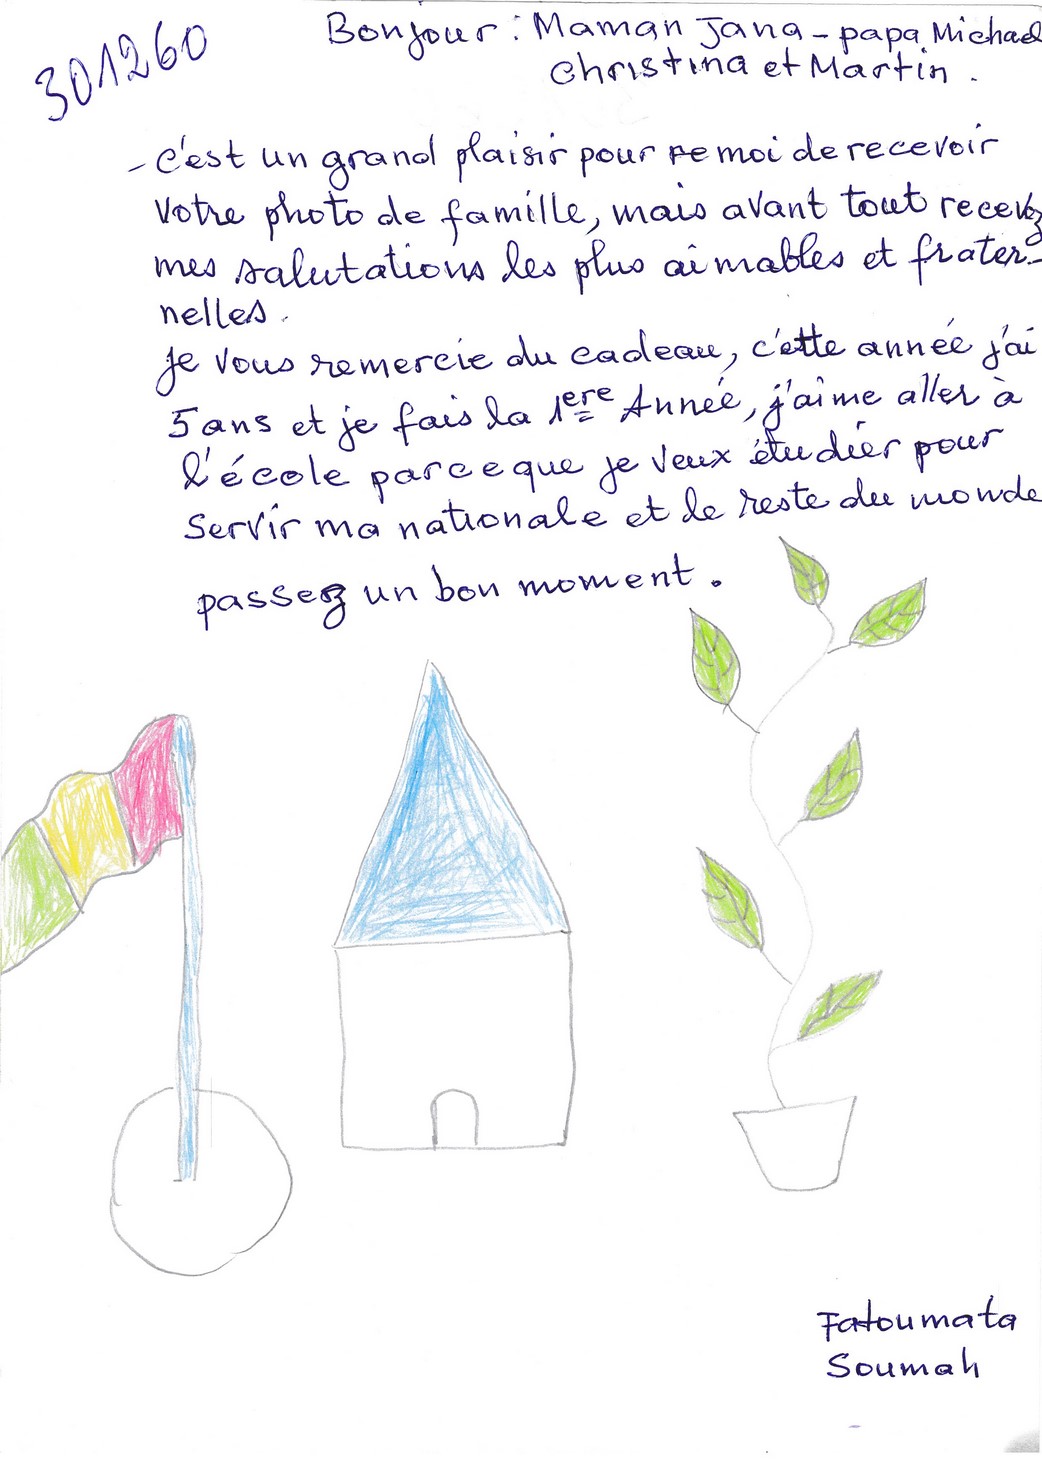 301260
Bonjour : Maman Jana - papa Michael
Christina et Martin .
- c'est un grand plaisir pour re moi de recevoir
votre photo de famille, mais avant tout recevez
mes salutations les plus aimables et frater-
nelles .
je vous remercie du cadeau, c'ette année j'ai
5 ans et je fais la 1ere Année, j'aime aller à
l'école parceque je veux étudier pour
servir ma nationale et le reste du monde
passez un bon moment .
Fatoumata
Soumah